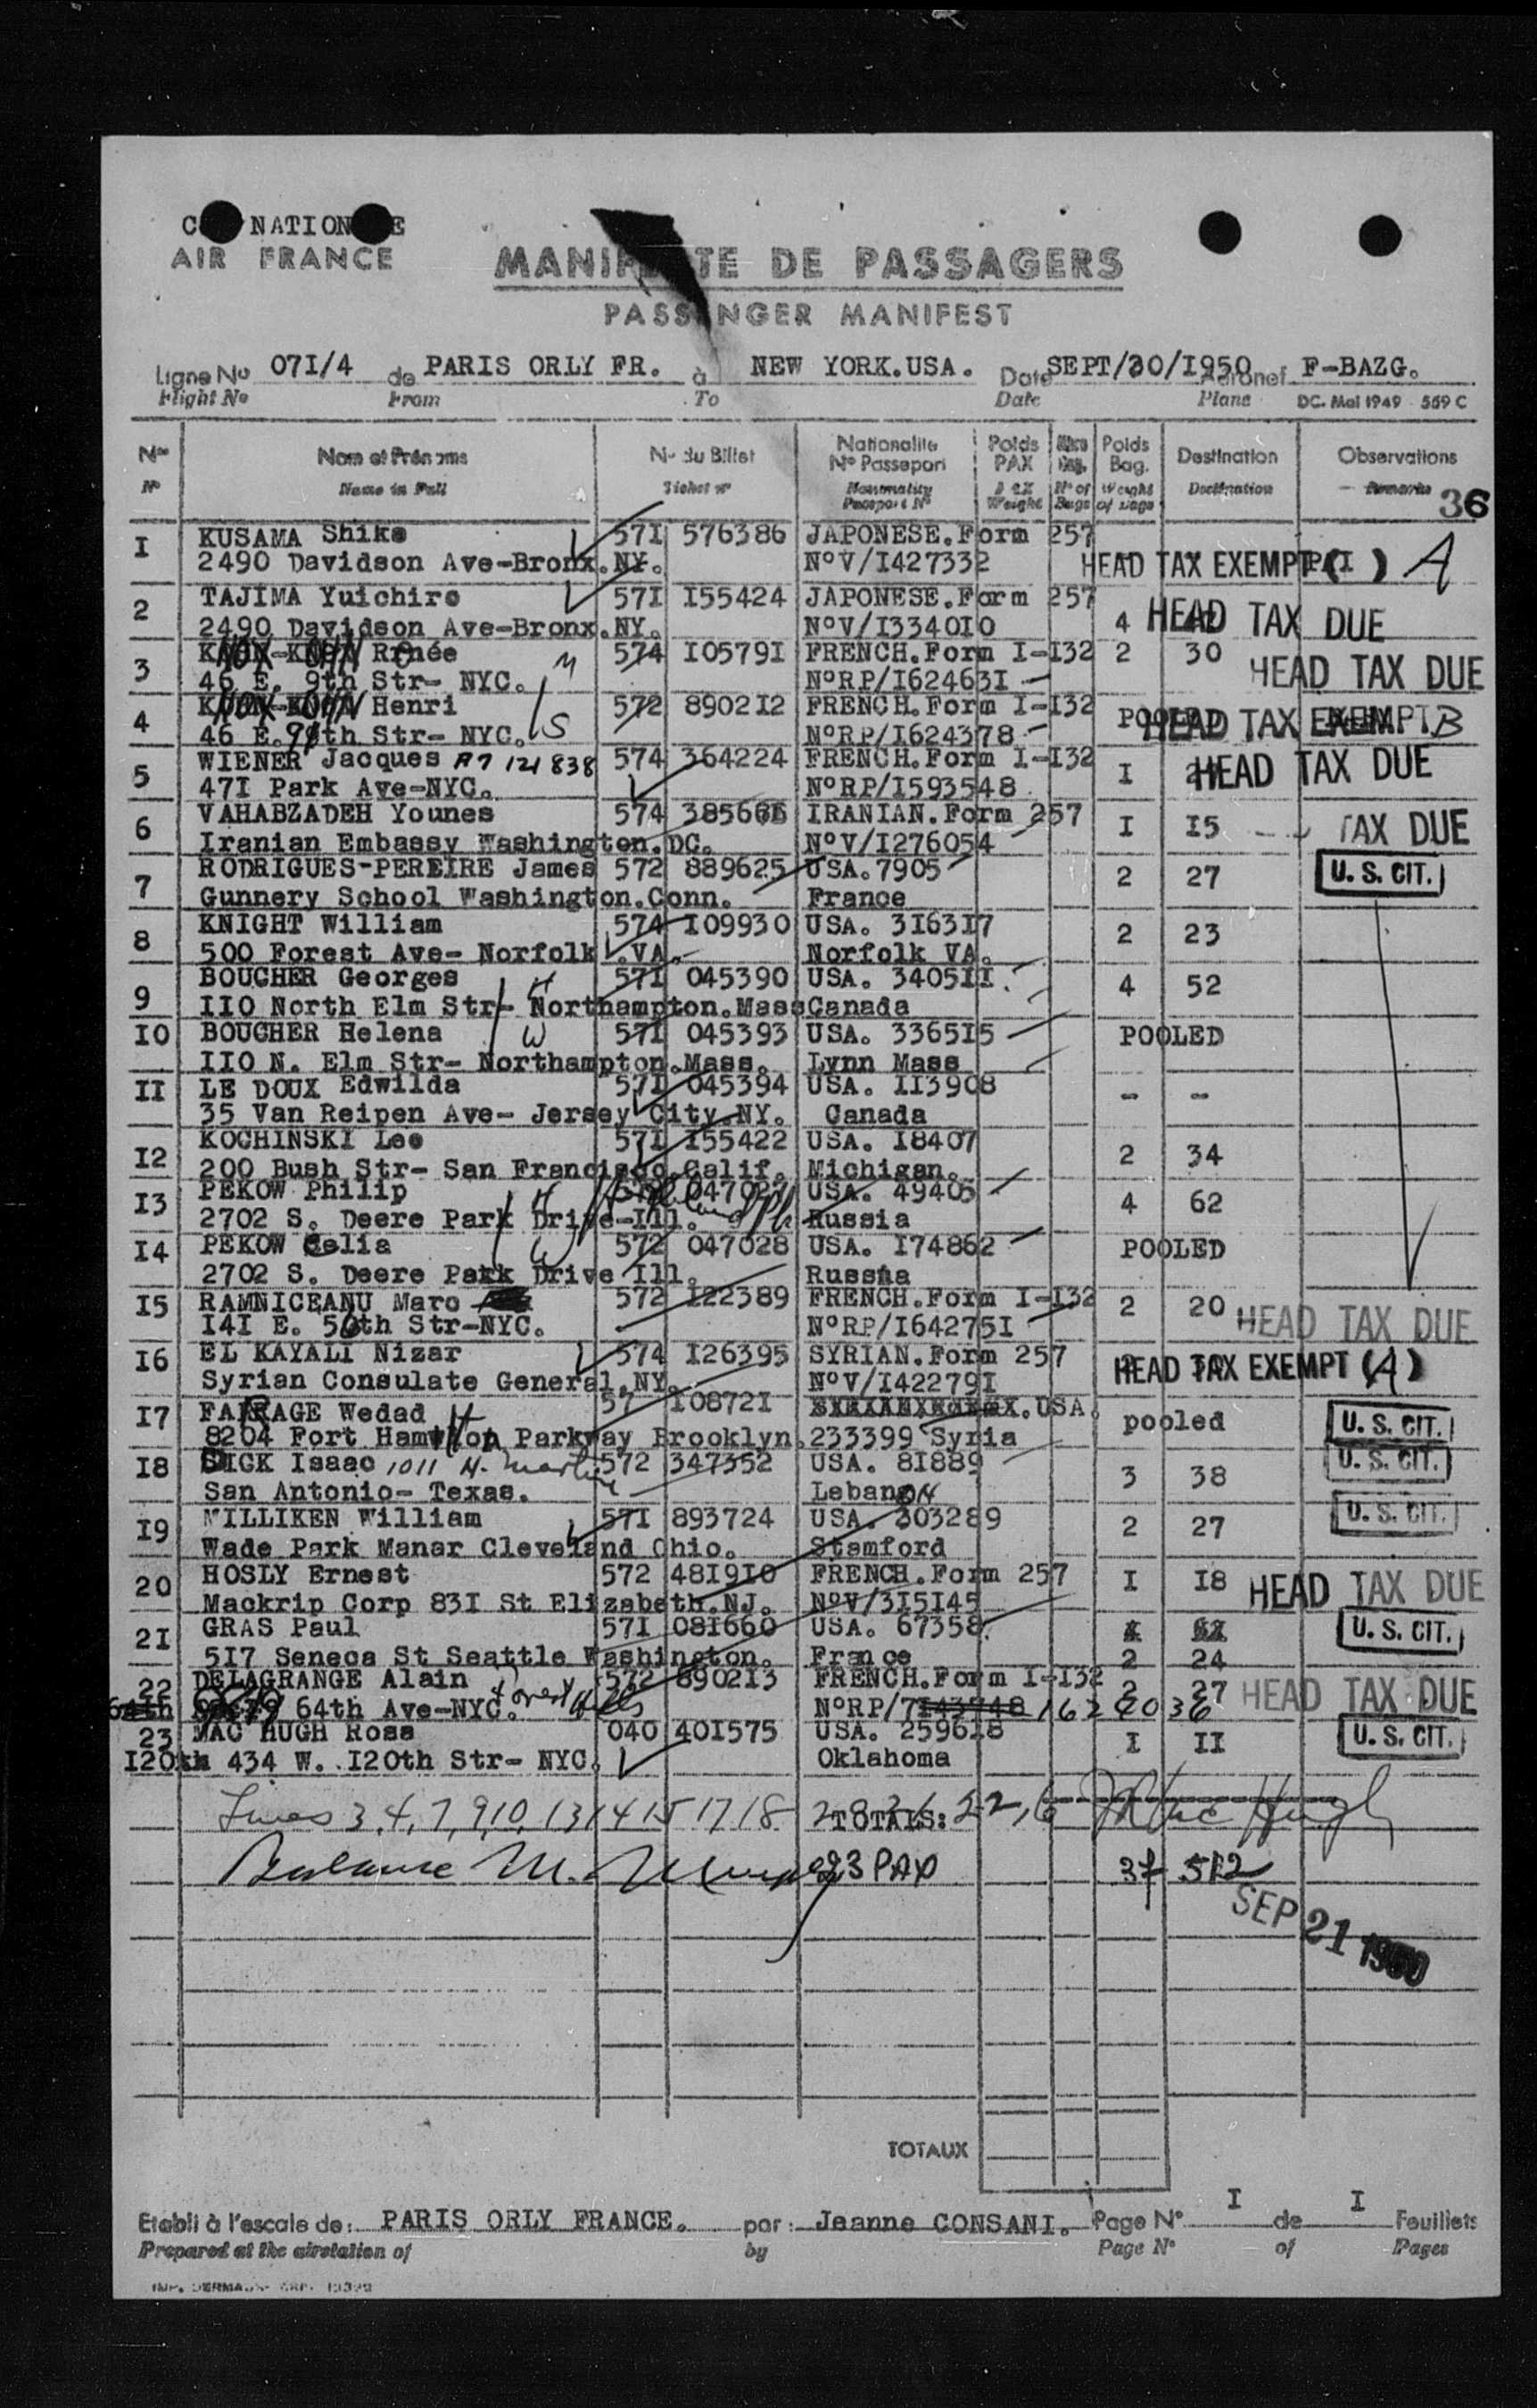 C NATION E
AIR FRANCE
MANIF TE DE PASSAGERS
PASSENGER MANIFEST
Ligne No 07I/4 de PARIS ORLY FR. à NEW YORK.USA. Date SEPT/20/I950 Aéronef F-BAZG.
Flight No From To Date Plane DC. Mai 1949 559 C
Nos Nom et Prénoms No du Billet Nationalité No Passeport Poids PAX Poids Bag. Destination Observations
No Name in Full Ticket No Nationality Passport No PAX Weight No of Bags Weight of bags Destination Remarks 36
I KUSAMA Shike 57I 576386 JAPONESE.Form 257
2490 Davidson Ave-Bronx.NY. NoV/I427332 HEAD TAX EXEMPT ( ) A
2 TAJIMA Yuichiro 57I I55424 JAPONESE.Form 257
2490 Davidson Ave-Bronx.NY. NoV/I3340I0 4 HEAD TAX DUE
3 Renée M 574 I0579I FRENCH.Form I-I32 2 30
46 E. 9th Str- NYC. NoRP/I62463I HEAD TAX DUE
4 Henri 572 8902I2 FRENCH.Form I-I32 POOLED
46 E. th Str- NYC. S NoRP/I624378 HEAD TAX EXEMPT B
5 WIENER Jacques A7 121 838 574 364224 FRENCH.Form I-I32
47I Park Ave-NYC. NoRP/I593548 I HEAD TAX DUE
6 VAHABZADEH Younes 574 IRANIAN.Form 257 I I5 TAX DUE
Iranian Embassy Washington.DC. NoV/I276054
7 RODRIGUES-PEREIRE James 572 889625 USA.7905 2 27 U. S. CIT.
Gunnery School Washington.Conn. France
8 KNIGHT William 574 I09930 USA. 3I63I7 2 23
500 Forest Ave- Norfolk .VA. Norfolk VA.
9 BOUCHER Georges H 57I 045390 USA. 3405II 4 52
II0 North Elm Str- Northampton.Mass Canada
I0 BOUCHER Helena W 57I 045393 USA. 3365I5 POOLED
II0 N. Elm Str- Northampton.Mass. Lynn Mass
II LE DOUX Edwilda 57I 045394 USA. II3908 - -
35 Van Reipen Ave- Jersey City.NY. Canada
I2 KOCHINSKI Leo 57I I55422 USA. I8407 2 34
200 Bush Str- San Francisco.Calif. Michigan.
I3 PEKOW Philip H 572 047027 USA. 49405 4 62
2702 S. Deere Park Drive-Ill. Russia
I4 PEKOW Celia W 572 047028 USA. I74862 POOLED
2702 S. Deere Park Drive Ill. Russia
I5 RAMNICEANU Marc 572 I22389 FRENCH.Form I-I32 2 20 HEAD TAX DUE
I4I E. 56th Str-NYC. NoRP/I64275I
I6 EL KAYALI Nizar 574 I26395 SYRIAN.Form 257 HEAD TAX EXEMPT (A)
Syrian Consulate General.NY. NoV/I42279I
I7 FARRAGE Wedad 57 I0872I .USA. pooled U. S. CIT.
8204 Fort Hamilton Parkway Brooklyn. 233399 Syria
I8 DICK Isaac 1011 N. 572 347352 USA. 8I889 3 38 U. S. CIT.
San Antonio- Texas. Lebanon
I9 MILLIKEN William 57I 893724 USA. 303289 2 27 U. S. CIT.
Wade Park Manar Cleveland Ohio. Stamford
20 HOSLY Ernest 572 48I9I0 FRENCH.Form 257 I I8 HEAD TAX DUE
Mackrip Corp 83I St Elizabeth.NJ. NoV/3I5I45
2I GRAS Paul 57I 08I660 USA. 67358. U. S. CIT.
5I7 Seneca St Seattle Washington. France 2 24
22 DELAGRANGE Alain Forest Hills 572 8902I3 FRENCH.Form I-I32 2 27 HEAD TAX DUE
64th 64th Ave-NYC. NoRP/7I43748 1622036
23 MAC HUGH Rosa 040 40I575 USA. 259628 I II U. S. CIT.
I20th 434 W. I20th Str- NYC. Oklahoma
Lines 3,4,7,9,10,13 14 15 17 18 TOTALS: Hugh
Balance M. 23 PAX 37 512
SEP 21 1950
TOTAUX
Etabli à l'escale de: PARIS ORLY FRANCE. par: Jeanne CONSANI. Page No I de I Feuillets
Prepared at the airstation of by Page No of Pages